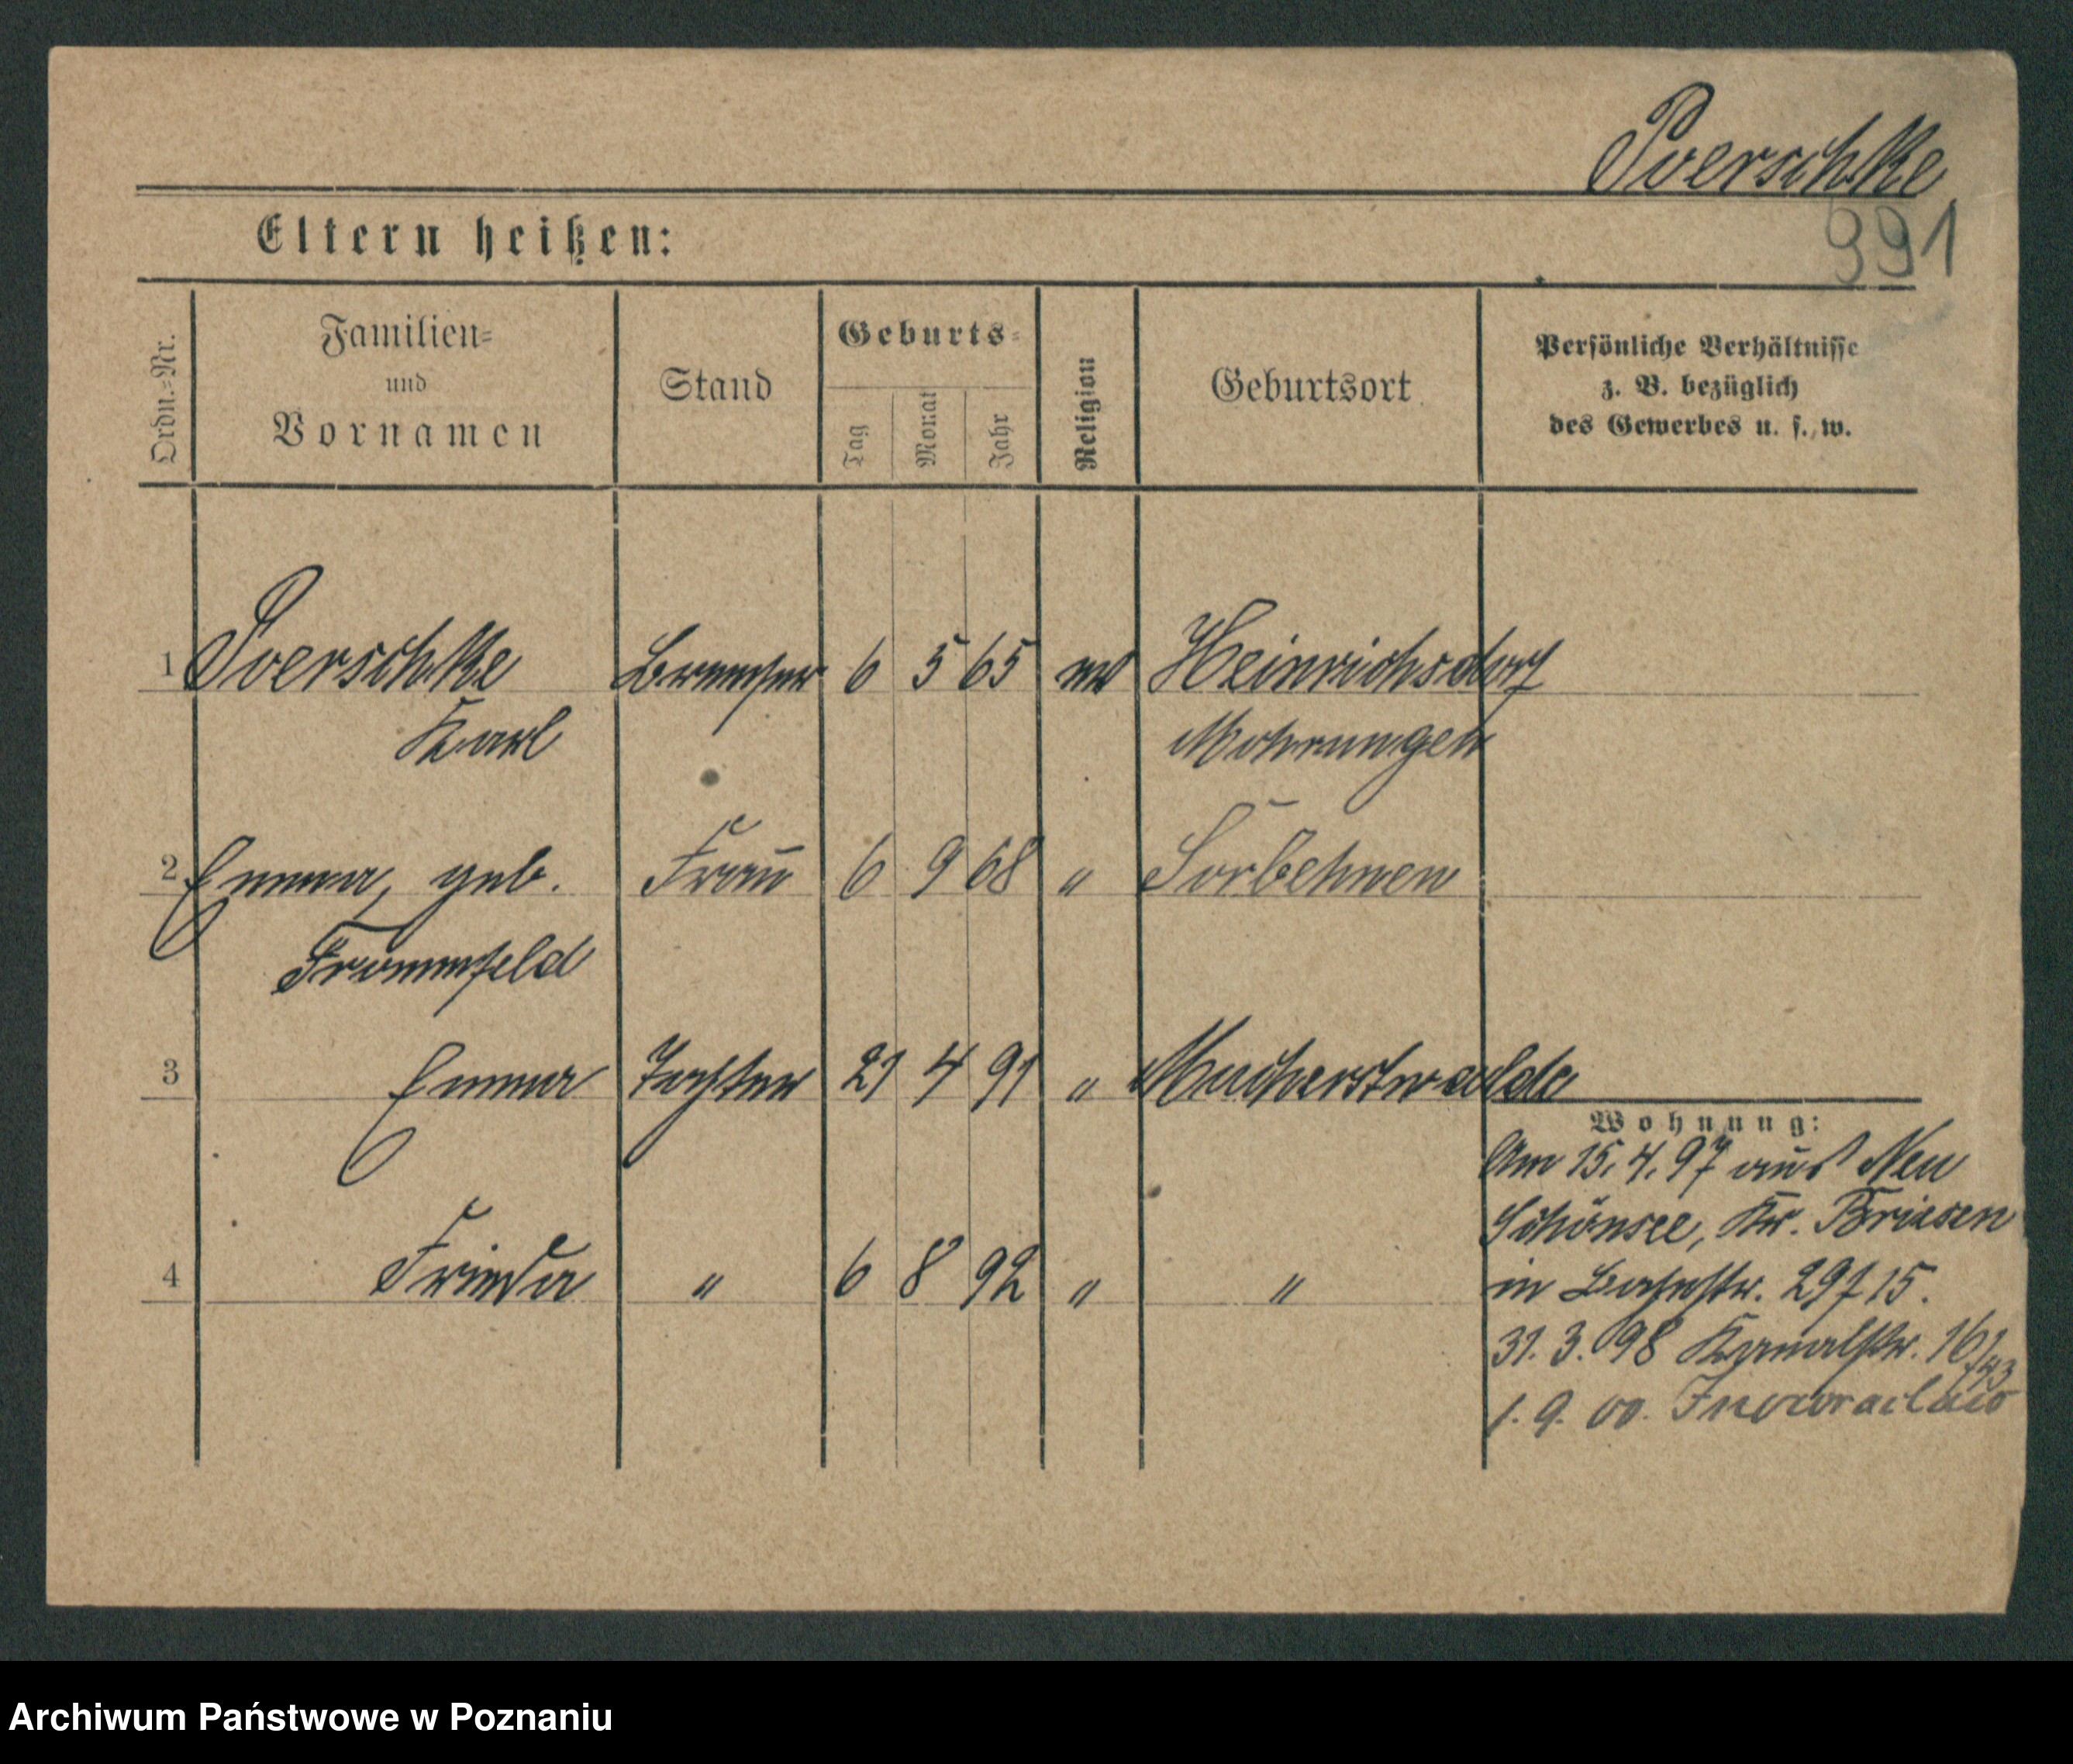 Poerschke
991
Eltern heißen:
Ordn.-Nr.
Familien-
und
Vornamen
Stand
Geburts-
Tag
Monat
Jahr
Religion
Geburtsort
Persönliche Verhältnisse
z. B. bezüglich
des Gewerbes u. s. w.
1 Poerschke Bremser 6 5 65 ev Heinrichsdorf
Karl Mohrungen
2 Emma, geb. Frau 6 9 68 " Sorbehnen
Frommfeld
3 Emma Tochter 21 4 91 "
Wohnung:
Am 15. 4. 97 aus Neu
Schönsee, Kr. Briesen
4 Frieda " 6 8 92 " "
in Bahnstr. 15.
31. 3. 98 Kanalstr. 16
1. 9. 00. Inowraclaw
Archiwum Państwowe w Poznaniu